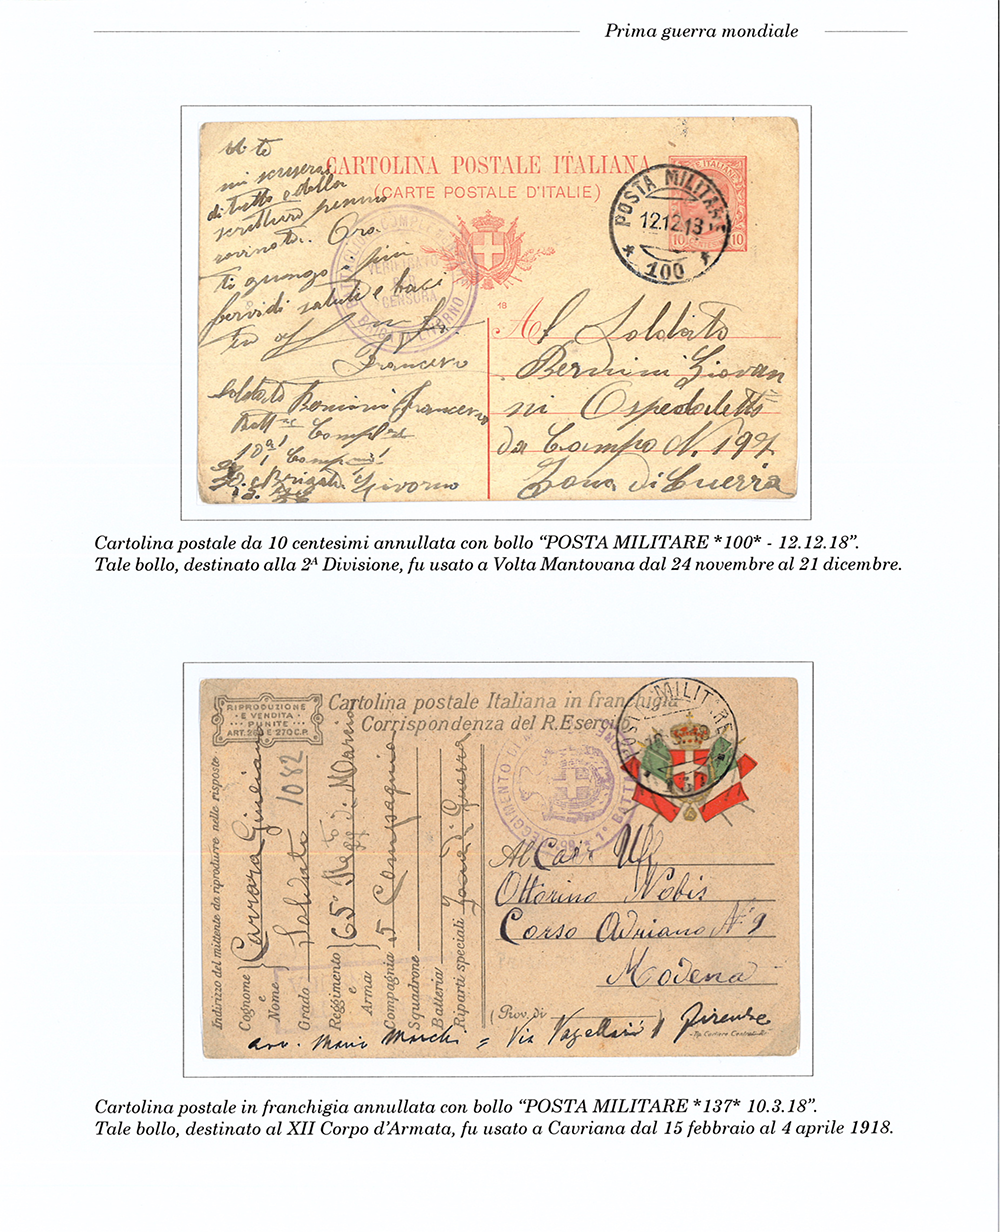 Prima guerra mondiale
A te
mi scrivevo
di tutto e della
scrittura penna
rovinata. Ora
ti giungo più
fervidi saluti e baci
tuo
Francesco
Soldato Francesco
Batt
10ª Comp
Brigata Livorno
CARTOLINA POSTALE ITALIANA
(CARTE POSTALE D'ITALIE)
VERIFICATO
PER
CENSURA
BRIGATA LIVORNO
POSTA MILITARE
12.12.18
* 100 *
10 10
18
Al Soldato
Bernini Giovan
ni Ospedaletto
da Campo N. 197
Zona di Guerra
Cartolina postale da 10 centesimi annullata con bollo “POSTA MILITARE *100* - 12.12.18”.
Tale bollo, destinato alla 2ᴬ Divisione, fu usato a Volta Mantovana dal 24 novembre al 21 dicembre.
RIPRODUZIONE
E VENDITA
PUNITE
ART. 268 E 270 C.P.
Cartolina postale Italiana in franchigia
Corrispondenza del R. Esercito
POSTA MILITARE
REGGIMENTO
1° BATT
Indirizzo del mittente da riprodurre nelle risposte
Cognome
e
Nome
Carrara Giuliano
Grado Soldato 1082
Reggimento
e
Arma
65° Regg.to di Marcia
Compagnia 5 Compagnia
Squadrone
Batteria
Riparti speciali Zona di Guerra
Al Cav Uff
Ottorino Nobis
Corso Adriano N° 9
Modena
(Prov. di )
avv. Mario Marchi = Via Vagellai 1 Firenze
Cartolina postale in franchigia annullata con bollo “POSTA MILITARE *137* 10.3.18”.
Tale bollo, destinato al XII Corpo d’Armata, fu usato a Cavriana dal 15 febbraio al 4 aprile 1918.